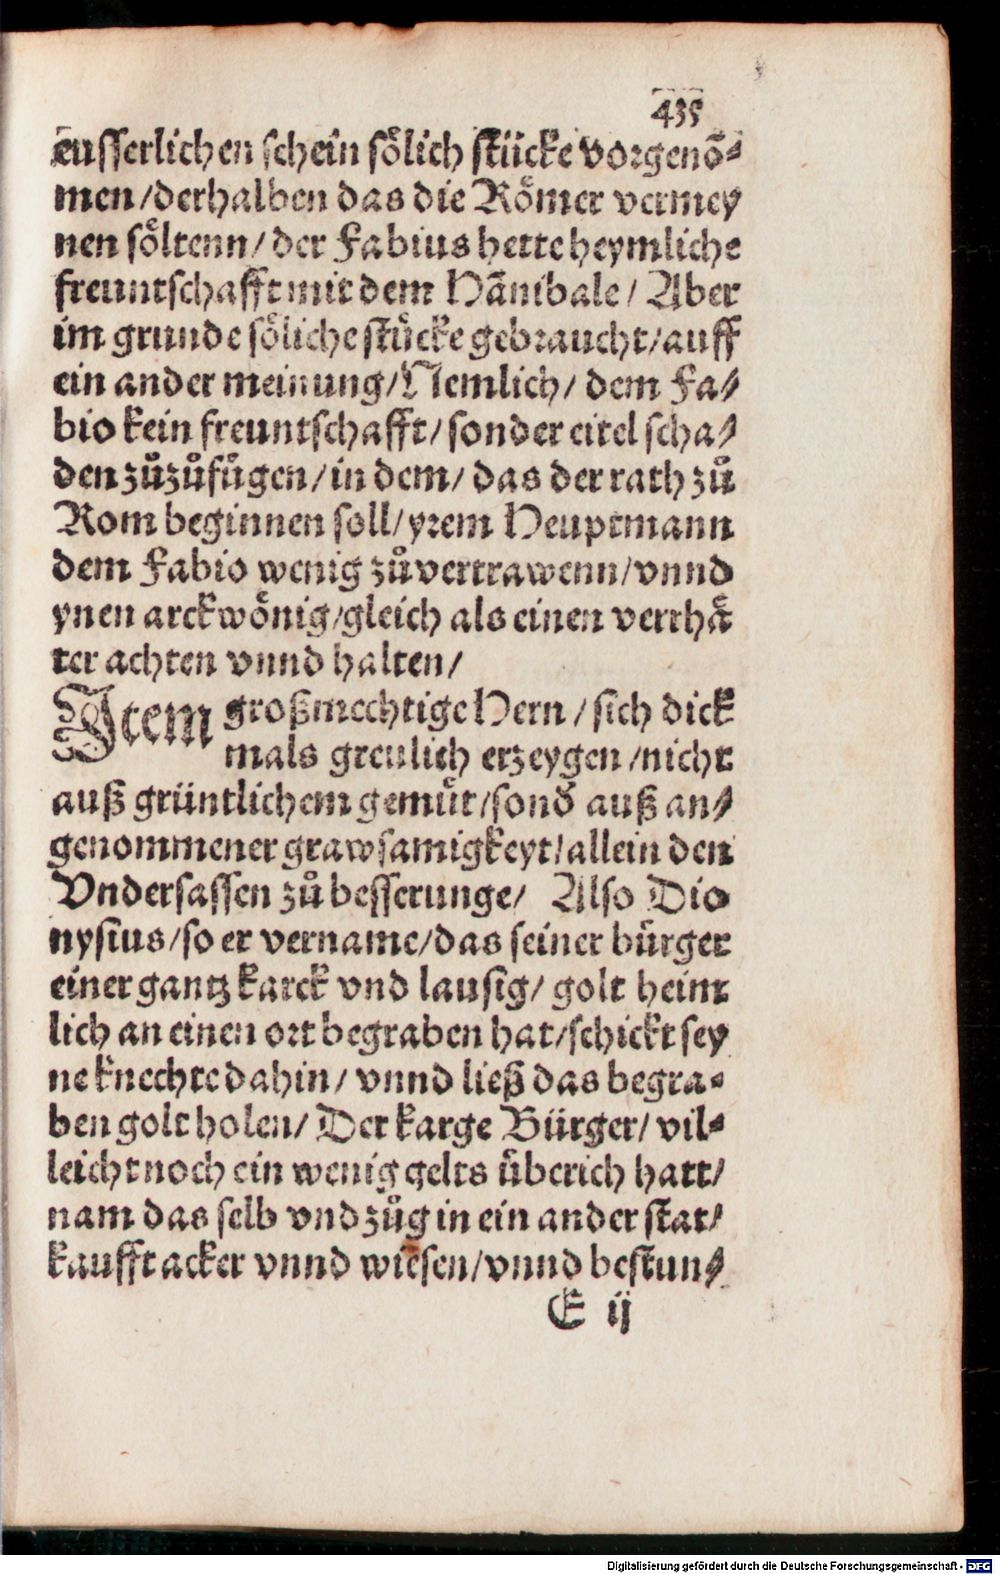 435
eusserlichen schein sölich stücke vorgenõ⸗
men/derhalben das die Römer vermey
nen söltenn/ der Fabius hette heymliche
freuntschafft mit dem Hãnibale/ Aber
im grunde söliche stücke gebraucht/auff
ein ander meinung/Nemlich/ dem Fa⸗
bio kein freuntschafft/ sonder eitel scha⸗
den zůzůfügen/in dem/ das der rath zů
Rom beginnen soll/yrem Heuptmann
dem Fabio wenig zůvertrawenn/vnnd
ynen arckwönig/gleich als einen verrhä
ter achten vnnd halten/
Item großmechtige Hern/ sich dick
mals greulich erzeygen/nicht
auß grüntlichem gemüt/sond̕ auß an⸗
genommener grawsamigkeyt/allein den
Vndersassen zů besserunge/ Also Dio
nysius/so er vername/das seiner bürger
einer gantz karck vnd lausig/ golt heim
lich an einen ort begraben hat/schickt sey
ne knechte dahin/ vnnd ließ das begra⸗
ben golt holen/ Der karge Bürger/ vil⸗
leicht noch ein wenig gelts überich hatt/
nam das selb vnd zůg in ein ander stat/
kaufft acker vnnd wiesen/vnnd bestun⸗
E ij
Digitalisierung gefördert durch die Deutsche Forschungsgemeinschaft - DFG